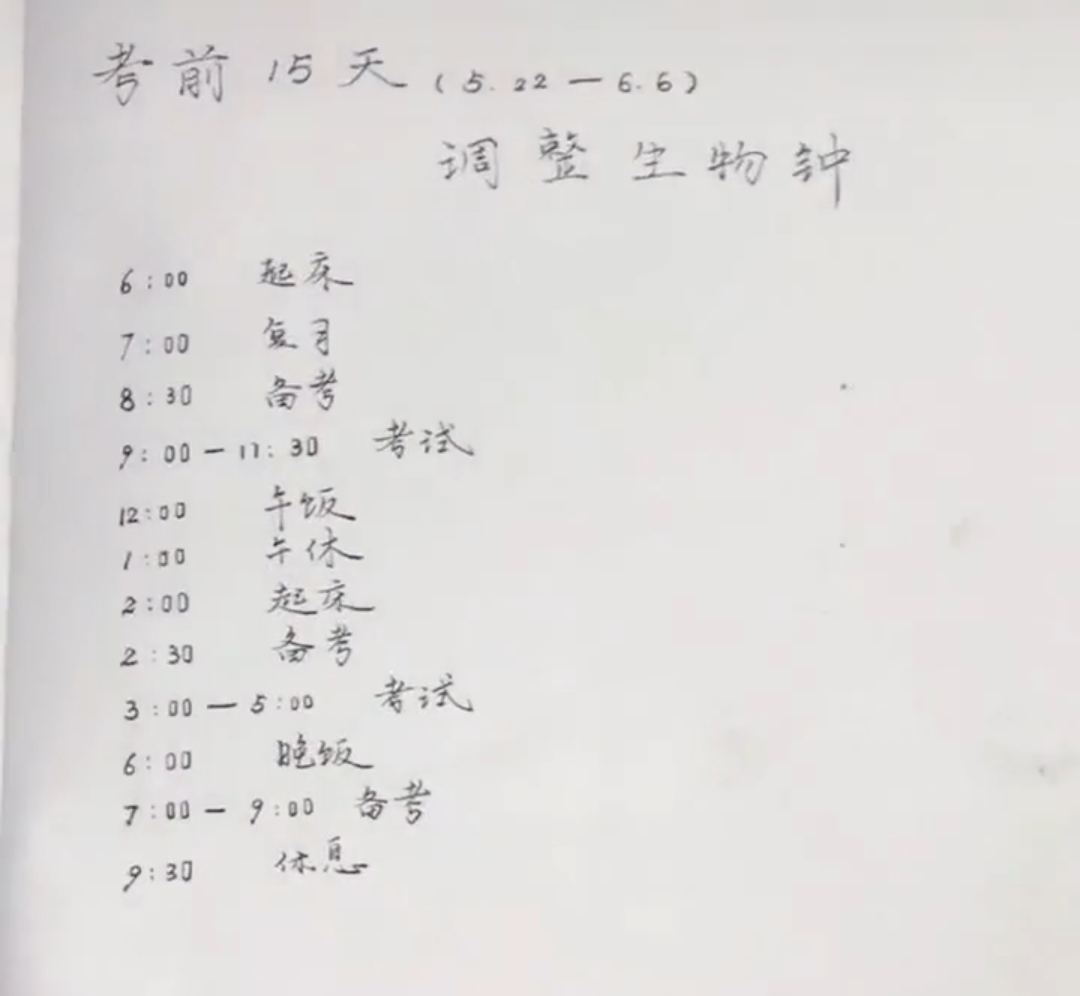 考前15天(5.22—6.6)
调整生物钟
6:00 起床
7:00 复习
8:30 备考
9:00—11:30 考试
12:00 午饭
1:00 午休
2:00 起床
2:30 备考
3:00—5:00 考试
6:00 晚饭
7:00—9:00 备考
9:30 休息